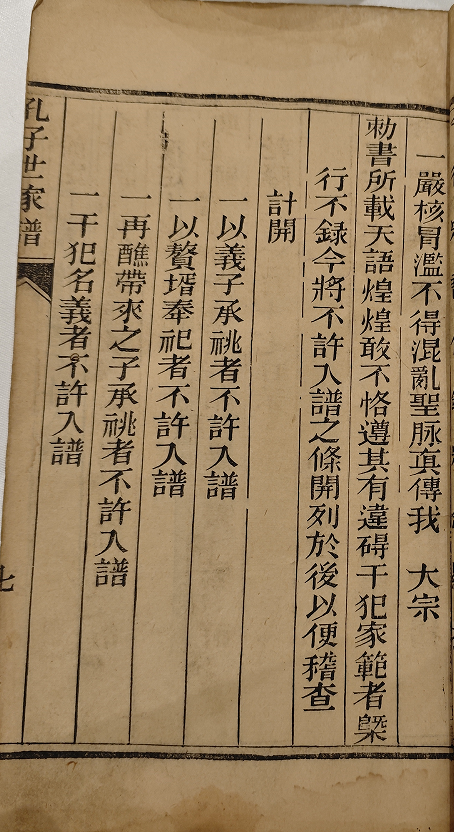 一嚴核冒濫不得混亂聖脉眞傳我　大宗
勅書所載天語煌煌敢不恪遵其有違碍干犯家範者槩
行不録今將不許入譜之條開列於後以便稽查
計開
一以義子承祧者不許入譜
一以贅壻奉祀者不許入譜
一再醮帶來之子承祧者不許入譜
一干犯名義者不許入譜
孔子世家譜
七